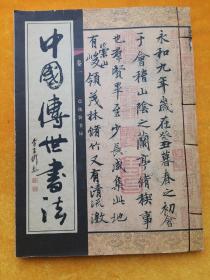 中國傳世書法
卷一
永和九年歲在癸丑暮春之初會
于會稽山陰之蘭亭脩稧事
也羣賢畢至少長咸集此地
有崇山
峻領茂林脩竹又有清流激